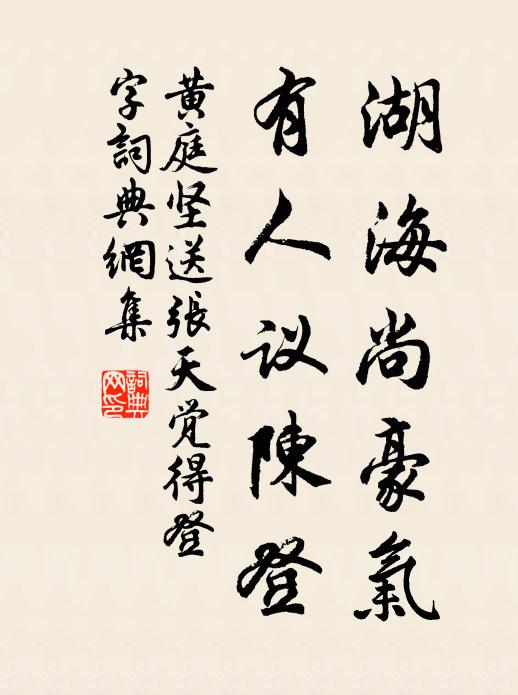 湖海尚豪氣
有人议陳登
黄庭坚送張天覚得登
字詞典網集
詞典
网印